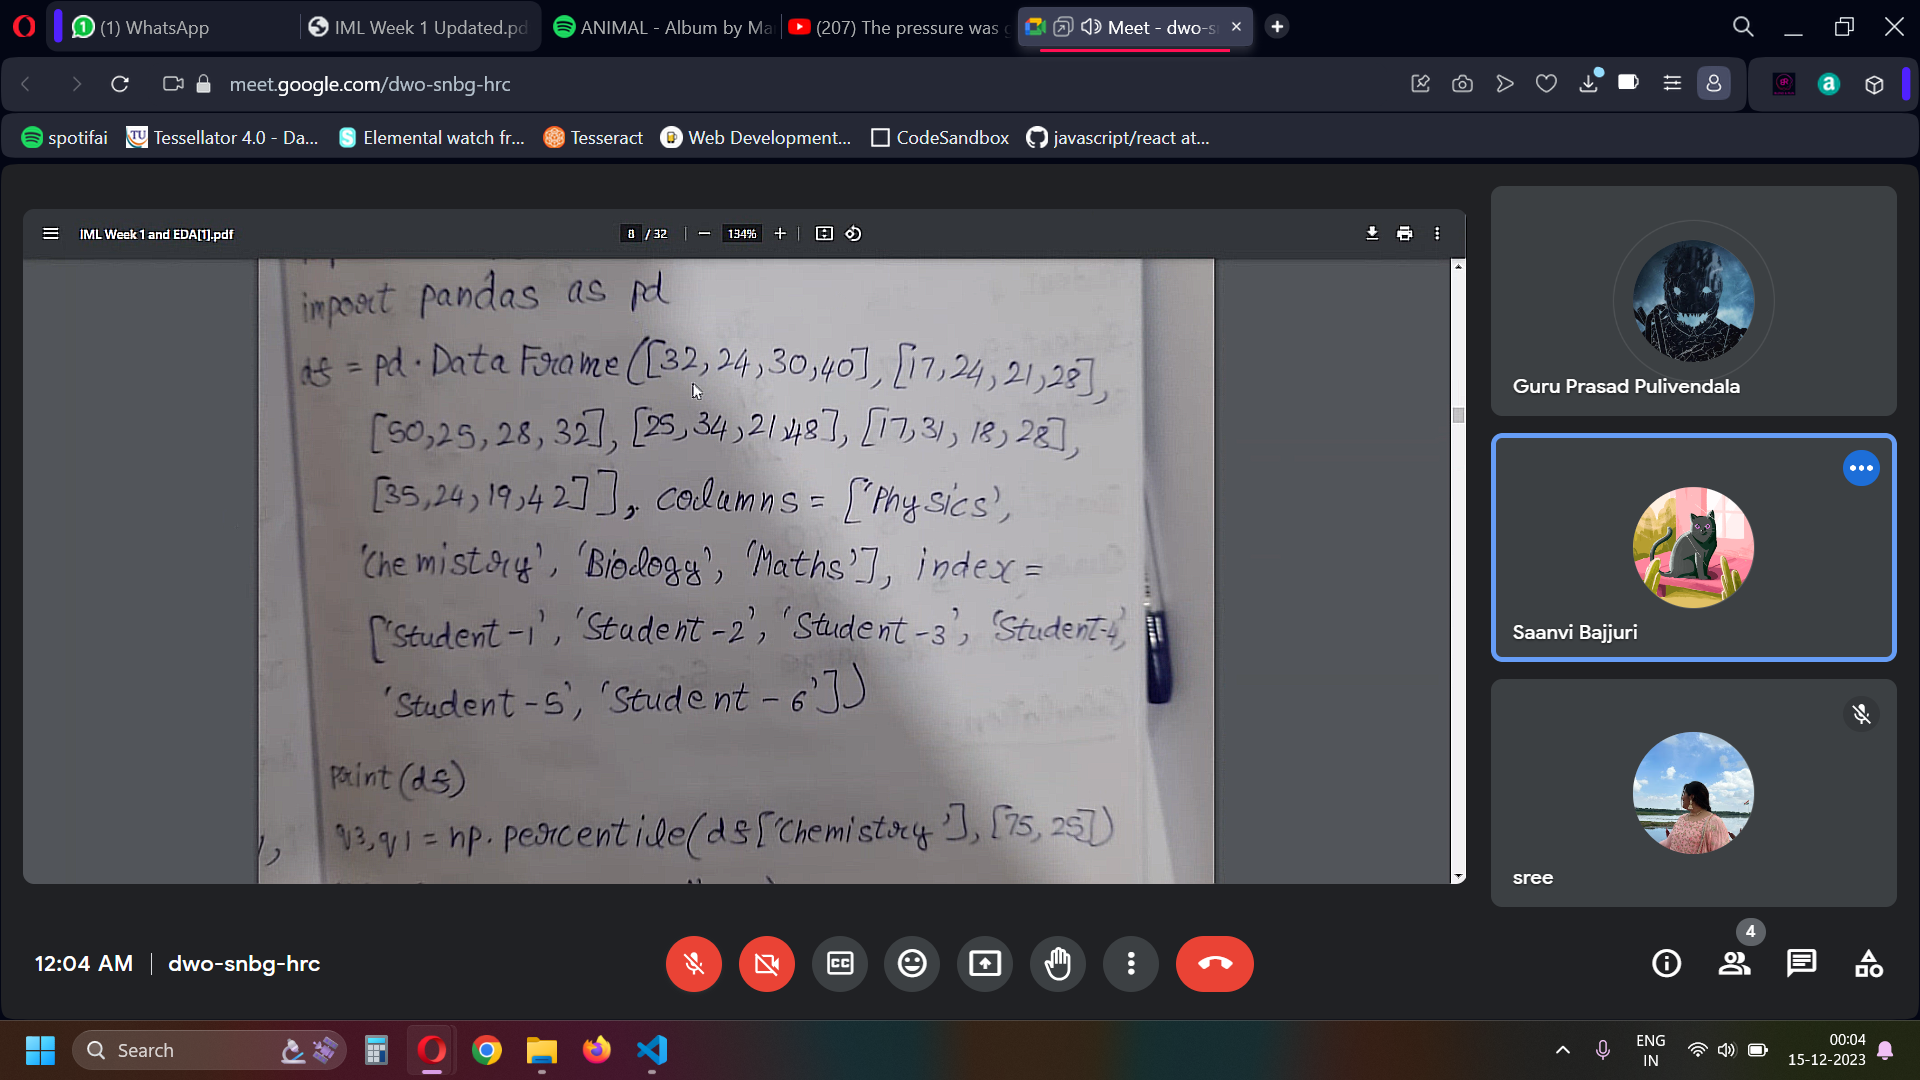 (1) WhatsApp
IML Week 1 Updated.pd
ANIMAL - Album by Ma
(207) The pressure was
Meet - dwo-s
meet.google.com/dwo-snbg-hrc
spotifai
Tessellator 4.0 - Da...
Elemental watch fr...
Tesseract
Web Development...
CodeSandbox
javascript/react at...
IML Week 1 and EDA[1].pdf
8 / 32
134%
import pandas as pd
df = pd.DataFrame([32,24,30,40], [17,24,21,28],
[50,25,28,32], [25,34,21,48], [17,31,18,28],
[35,24,19,42]], columns = ['Physics',
'Chemistry', 'Biology', 'Maths'], index =
['Student-1', 'Student-2', 'Student-3', 'Student-4,
'Student-5', 'Student-6'])
print(df)
q3,q1 = np.percentile(df['Chemistry'], [75,25])
Guru Prasad Pulivendala
Saanvi Bajjuri
sree
12:04 AM | dwo-snbg-hrc
CC
4
Search
ENG
IN
00:04
15-12-2023